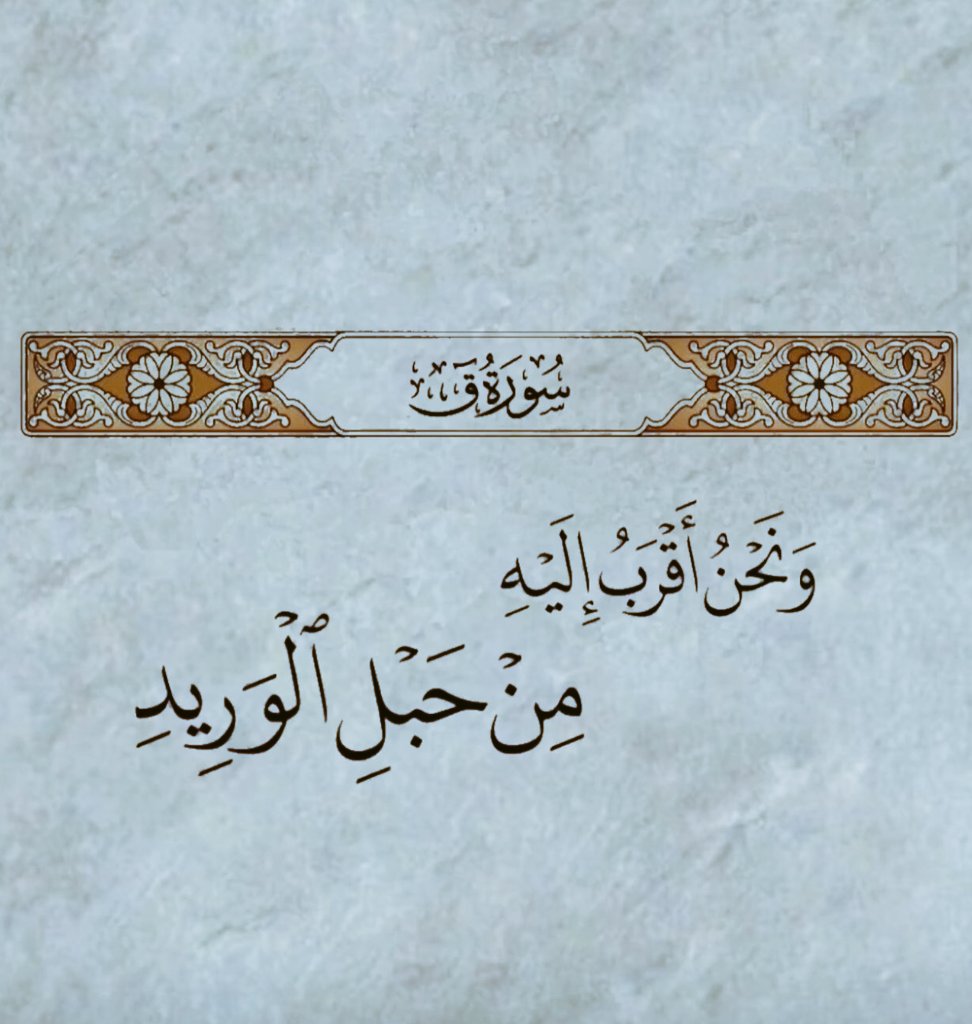 سُورَةُ قٓ
وَنَحْنُ أَقْرَبُ إِلَيْهِ
مِنْ حَبْلِ ٱلْوَرِيدِ